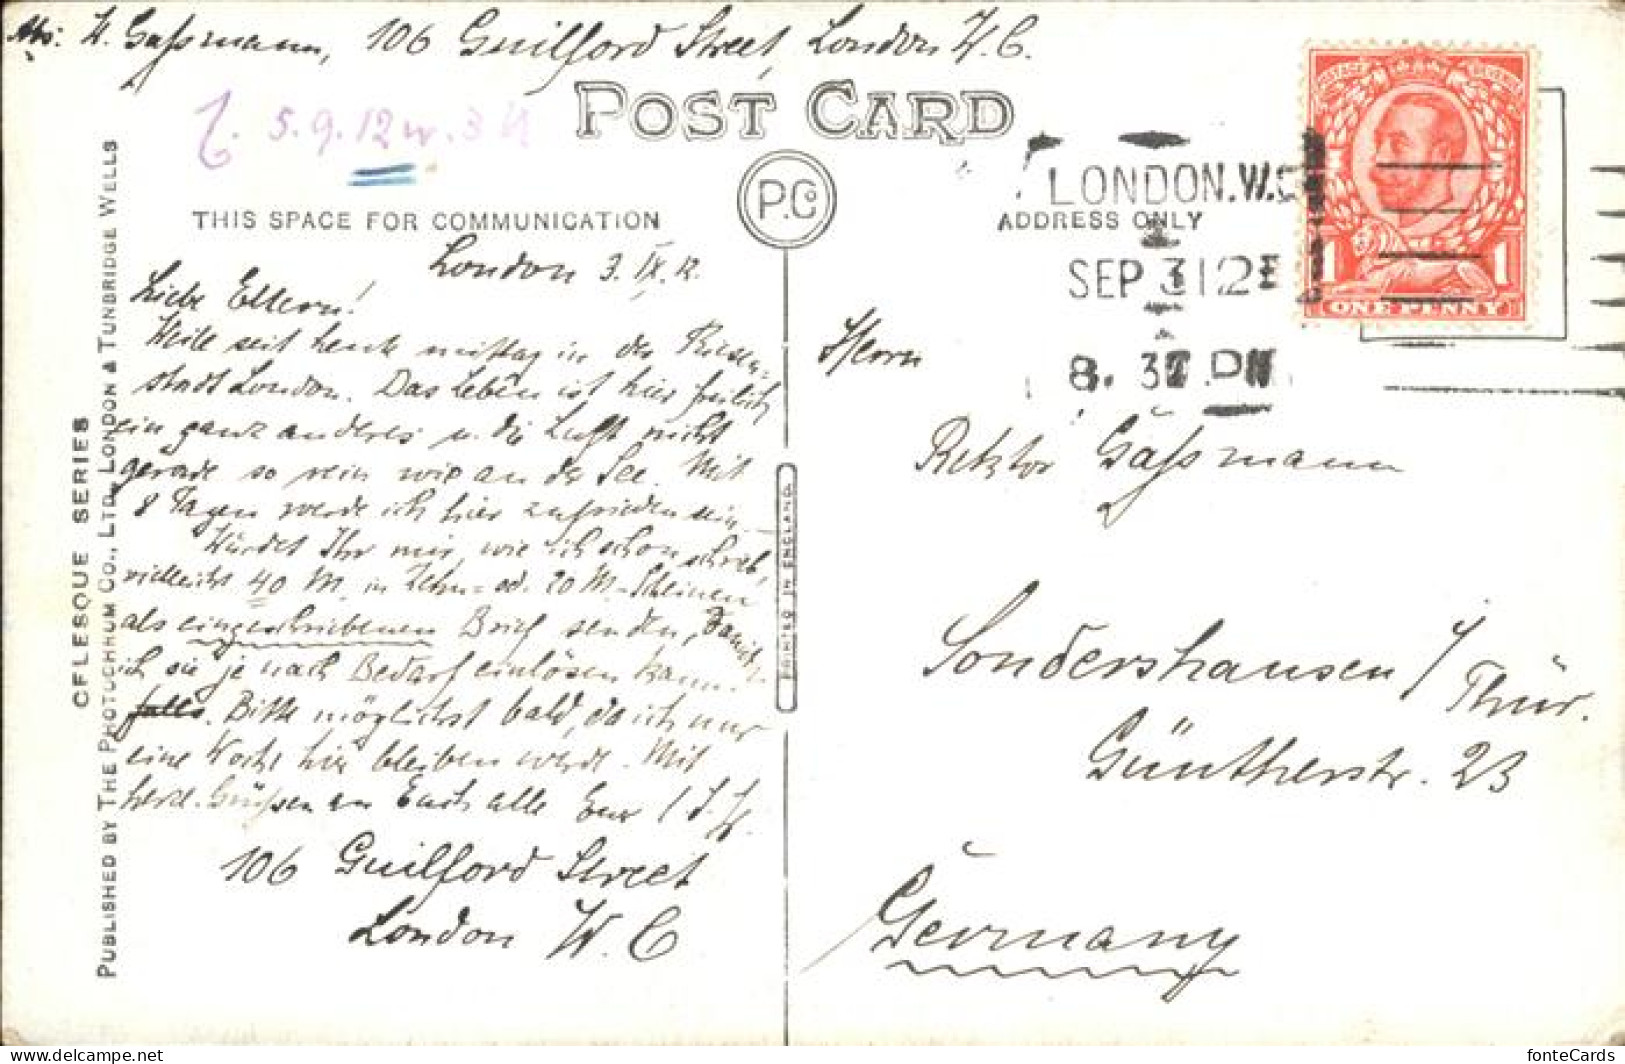 Abs: W. Gaßmann, 106 Guilford Street, London W.C.
5.9.12
POST CARD
P.Co
THIS SPACE FOR COMMUNICATION
ADDRESS ONLY
LONDON.W.C
SEP 3 12
8. 3 PM
POSTAGE REVENUE
1 1
ONE PENNY
London 3. IX. 12.
Liebe Eltern!
Weile seit heute mittag in der Riesen-
stadt London. Das Leben ist hier freilich
ein ganz anderes u. die Luft nicht
gerade so rein wie an der See. Mit
8 Tagen werde ich hier zufrieden sein.
Würdet Ihr mir, wie ich schon schrieb,
vielleicht 40 M. in Zehn- od. 20 M-Scheinen
als eingeschriebenen Brief senden, damit
ich sie je nach Bedarf einlösen kann.
falls. Bitte möglichst bald, da ich nur
eine Woche hier bleiben werde. Mit
herzl. Grüßen an Euch alle Euer
106 Guilford Street
London W. C
Herrn
Rektor Gaßmann
Sondershausen / Thür.
Güntherstr. 23
Germany
PRINTED IN ENGLAND
CFLESQUE SERIES
PUBLISHED BY THE PHOTOCHROM CO., LTD., LONDON & TUNBRIDGE WELLS
fonteCards
delcampe.net